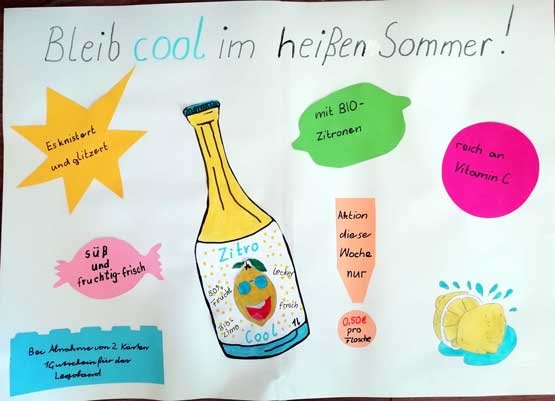 Bleib cool im heißen Sommer!
Es knistert
und glitzert
mit BIO-
Zitronen
reich an
Vitamin C
süß
und
fruchtig-frisch
Aktion
dieser
Woche
nur
0,50€
pro
Flasche
Zitro
Lecker
Frucht
frisch
Cool
1L
Bei Abnahme von 2 Kästen
1 Gutschein für das
Legoland